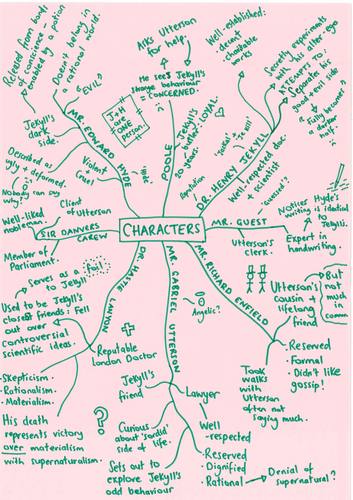 Released from bonds
of conscience -
enabled by a potion
Doesn't belong in
a rational world.
"EVIL"
MR. EDWARD HYDE
Jekyll's
dark side.
Described as
ugly + deformed.
Nobody can say
why
Violent
Cruel
"Hyde"
J+H
are
ONE
person.
Asks Utterson
for help.
He sees Jekyll's
strange behaviour
= CONCERNED.
POOLE
Jekyll's
butler:
20 years.
LOYAL.
Well-established:
- decent
- charitable
works
DR. HENRY JEKYLL
Reputation
Well-respected doc.
+ scientist
Secretly experiments
with his alter-ego
ATTEMPTS TO:
Separate his
good + evil side
Fully become
a darker
half.
CHARACTERS
SIR DANVERS
CAREW
Client
of Utterson
Well-liked
nobleman.
Member of
Parliament.
MR. GUEST
Utterson's
clerk.
Expert in
handwriting.
Notices Hyde's
writing is identical
to Jekyll's.
DR. HASTIE
LANYON
Serves as a 'foil'
to Jekyll
Used to be Jekyll's
closest friends: Fell
out over
controversial
scientific ideas.
Reputable
London Doctor
- Skepticism.
- Rationalism.
- Materialism.
His death
represents victory
over materialism
with supernaturalism.
MR. GABRIEL UTTERSON
Angelic?
Jekyll's
friend
?
Curious
about 'sordid'
side of life.
Sets out to
explore Jekyll's
odd behaviour
Lawyer
Well
-respected
Reserved
Dignified
Rational
Denial of
supernatural?
MR. RICHARD ENFIELD
Utterson's
cousin +
lifelong
friend
But
not
much
in
Took
walks
with
Utterson
often not
saying much.
- Reserved
- Formal
- Didn't like
gossip!